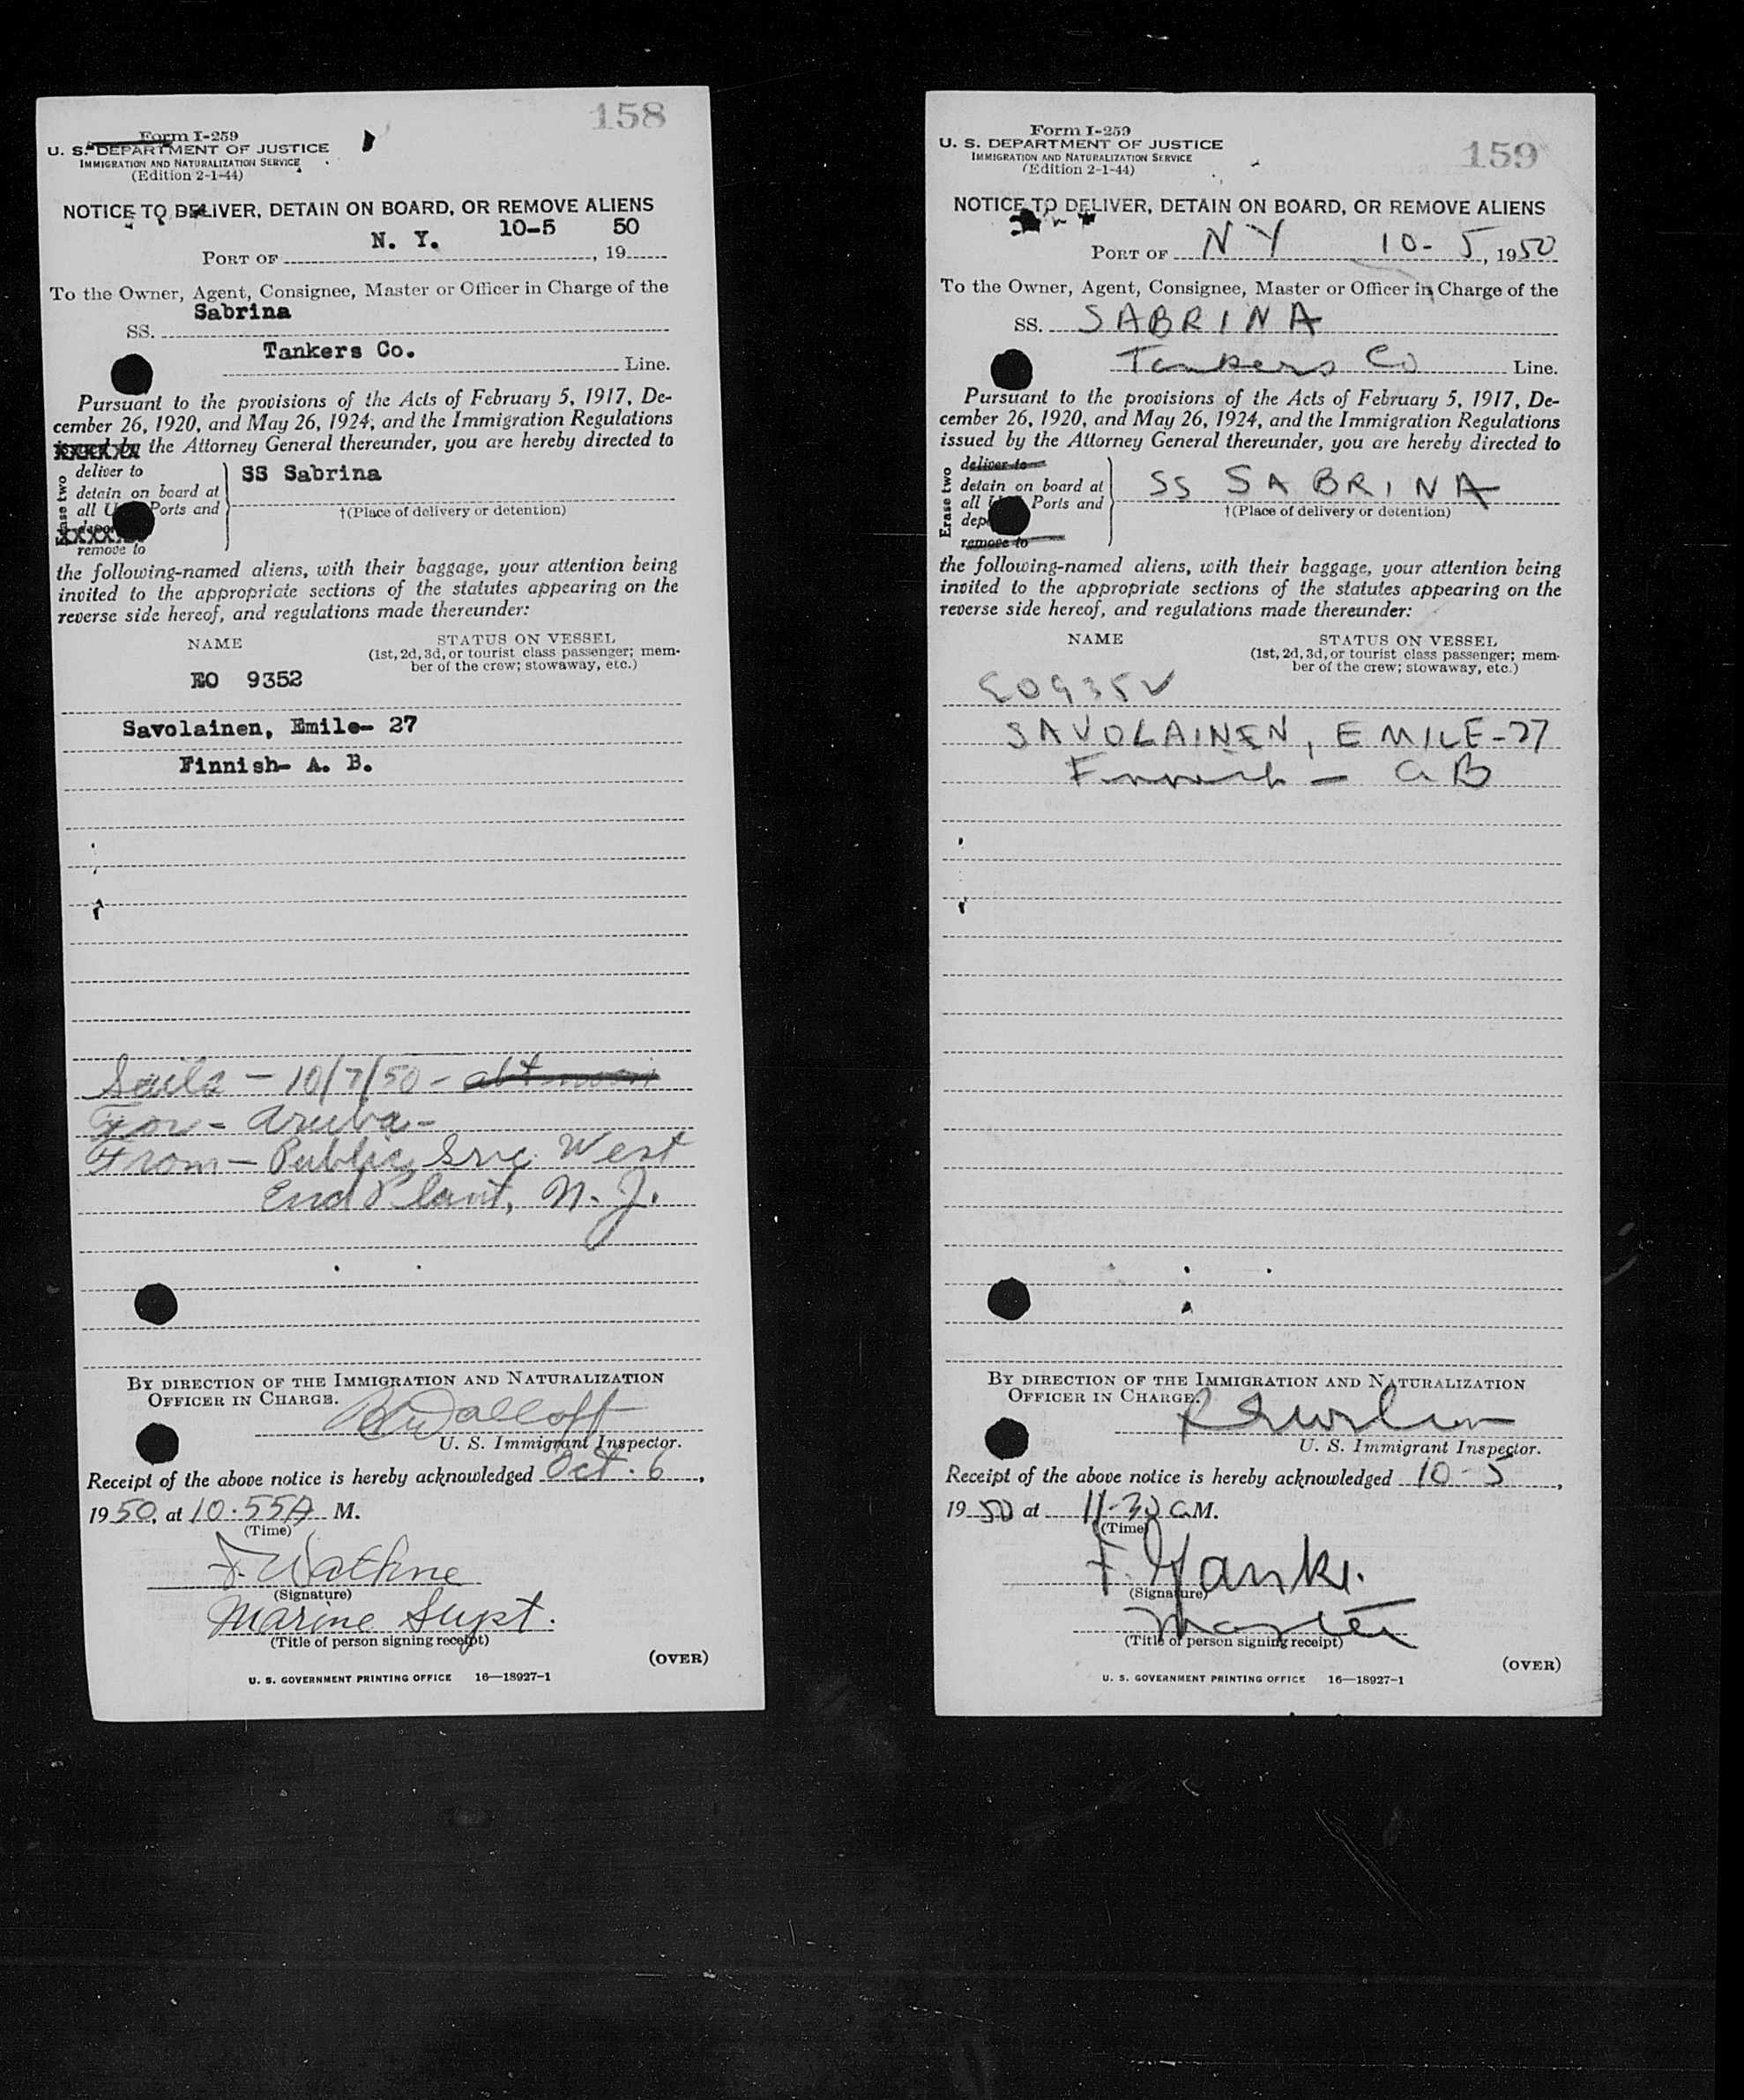 158
Form I-259
U. S. DEPARTMENT OF JUSTICE
IMMIGRATION AND NATURALIZATION SERVICE
(Edition 2-1-44)
NOTICE TO DELIVER, DETAIN ON BOARD, OR REMOVE ALIENS
10-5 50
PORT OF N. Y. , 19
To the Owner, Agent, Consignee, Master or Officer in Charge of the
SS. Sabrina
Tankers Co. Line.
Pursuant to the provisions of the Acts of February 5, 1917, De-
cember 26, 1920, and May 26, 1924, and the Immigration Regulations
issued by the Attorney General thereunder, you are hereby directed to
Erase two
deliver to
detain on board at
all U Ports and
depo
remove to
SS Sabrina
†(Place of delivery or detention)
the following-named aliens, with their baggage, your attention being
invited to the appropriate sections of the statutes appearing on the
reverse side hereof, and regulations made thereunder:
NAME
STATUS ON VESSEL
(1st, 2d, 3d, or tourist class passenger; mem-
ber of the crew; stowaway, etc.)
EO 9352
Savolainen, Emile- 27
Finnish- A. B.
Sails - 10/7/50 - abt noon
For - Aruba -
From - Public Srvc. West
End Plant, N. J.
BY DIRECTION OF THE IMMIGRATION AND NATURALIZATION
OFFICER IN CHARGE.
U. S. Immigrant Inspector.
Receipt of the above notice is hereby acknowledged Oct. 6,
1950, at 10.55A M.
(Time)
(Signature)
Marine Supt.
(Title of person signing receipt)
(OVER)
U. S. GOVERNMENT PRINTING OFFICE 16—18927-1
159
Form I-259
U. S. DEPARTMENT OF JUSTICE
IMMIGRATION AND NATURALIZATION SERVICE
(Edition 2-1-44)
NOTICE TO DELIVER, DETAIN ON BOARD, OR REMOVE ALIENS
PORT OF NY 10-5, 1950
To the Owner, Agent, Consignee, Master or Officer in Charge of the
SS. SABRINA
Tankers Co Line.
Pursuant to the provisions of the Acts of February 5, 1917, De-
cember 26, 1920, and May 26, 1924, and the Immigration Regulations
issued by the Attorney General thereunder, you are hereby directed to
Erase two
deliver to
detain on board at
all U Ports and
dep
remove to
SS SABRINA
†(Place of delivery or detention)
the following-named aliens, with their baggage, your attention being
invited to the appropriate sections of the statutes appearing on the
reverse side hereof, and regulations made thereunder:
NAME
STATUS ON VESSEL
(1st, 2d, 3d, or tourist class passenger; mem-
ber of the crew; stowaway, etc.)
EO9352
SAVOLAINEN, EMILE-27
Finnish - AB
BY DIRECTION OF THE IMMIGRATION AND NATURALIZATION
OFFICER IN CHARGE.
U. S. Immigrant Inspector.
Receipt of the above notice is hereby acknowledged 10-5,
1950 at 11-30 a M.
(Time)
(Signature)
Master
(Title of person signing receipt)
(OVER)
U. S. GOVERNMENT PRINTING OFFICE 16—18927-1